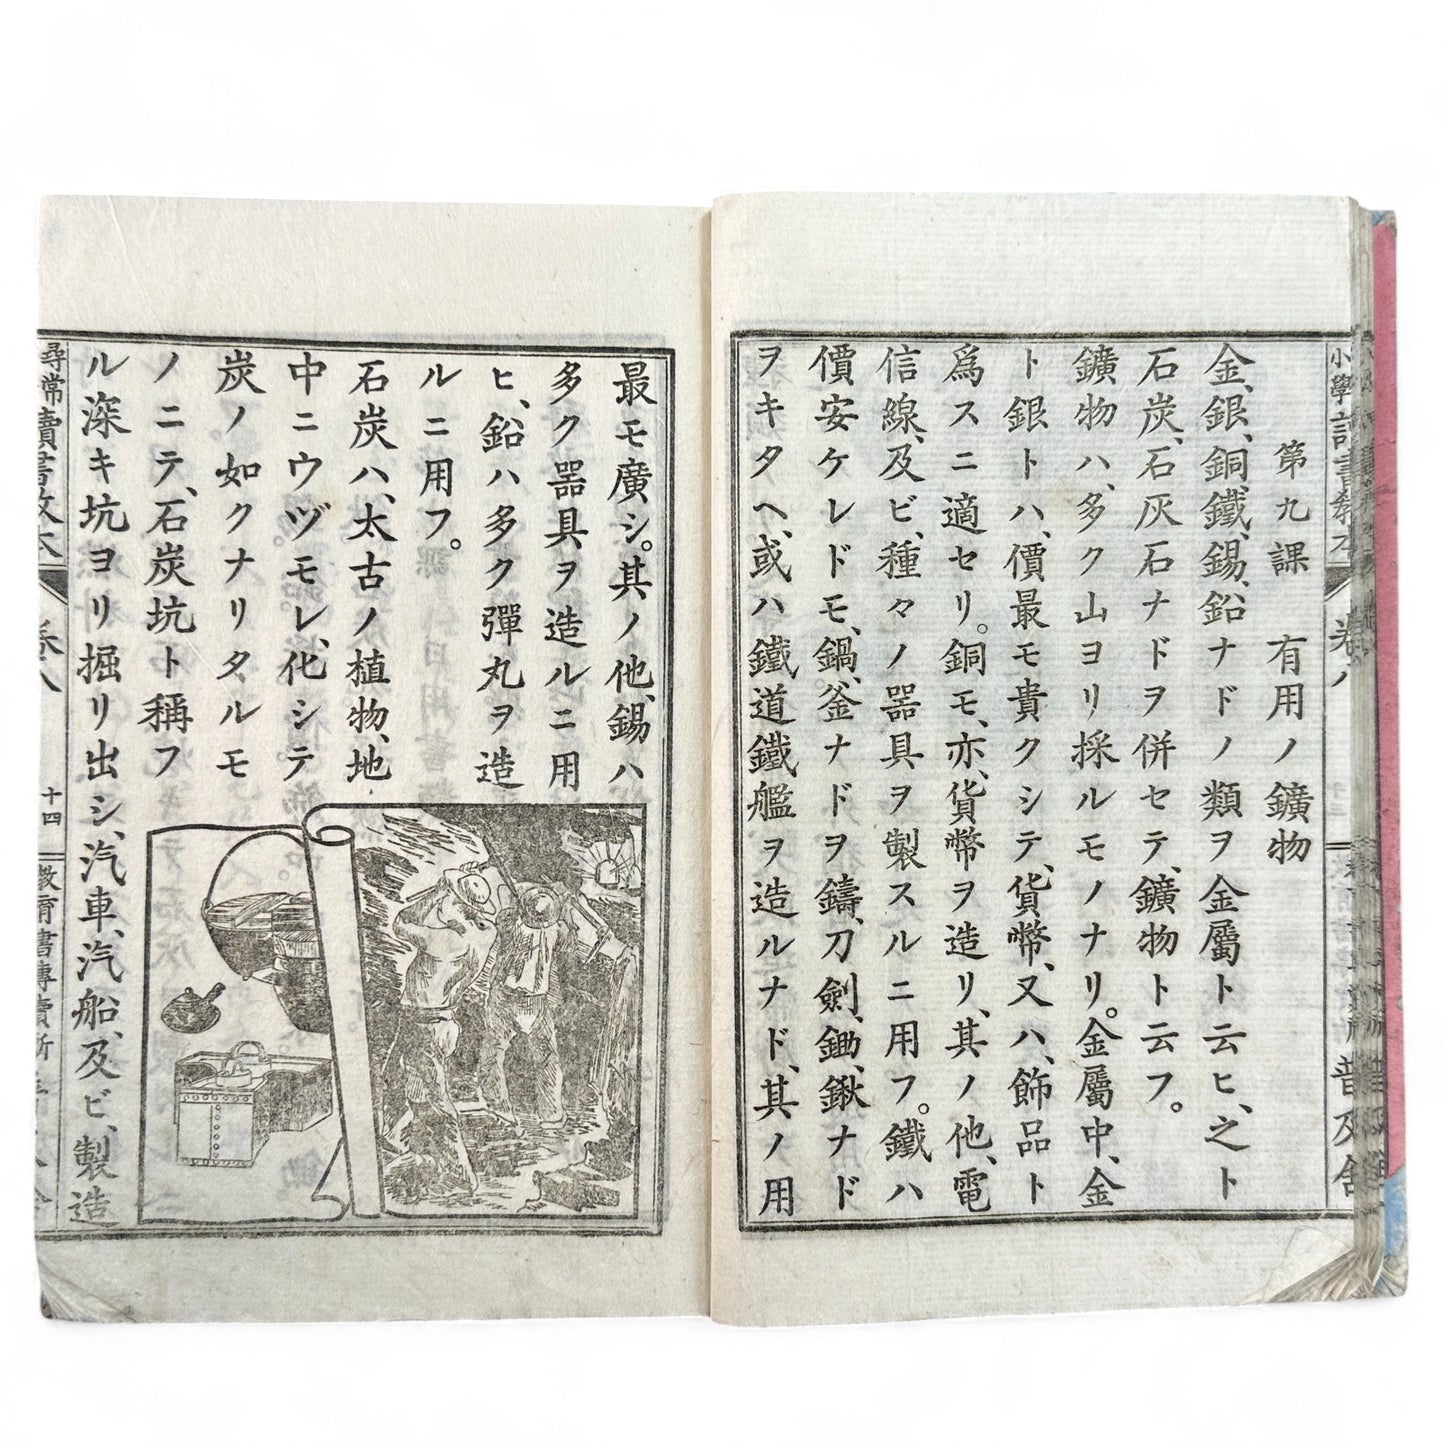 第九課 有用ノ鑛物
金、銀、銅、鐵、錫、鉛ナドノ類ヲ金屬ト云ヒ、之ト
石炭、石灰石ナドヲ併セテ、鑛物ト云フ。
鑛物ハ、多ク山ヨリ採ルモノナリ。金屬中、金
ト銀トハ、價最モ貴クシテ、貨幣、又ハ、飾品ト
爲スニ適セリ。銅モ、亦、貨幣ヲ造リ、其ノ他、電
信線、及ビ、種々ノ器具ヲ製スルニ用フ。鐵ハ
價安ケレドモ、鍋、釜ナドヲ鑄、刀劍、鋤、鍬ナド
ヲキタヘ、或ハ鐵道鐵艦ヲ造ルナド、其ノ用
最モ廣シ。其ノ他、錫ハ
多ク器具ヲ造ルニ用
ヒ、鉛ハ多ク彈丸ヲ造
ルニ用フ。
石炭ハ、太古ノ植物、地
中ニウヅモレ、化シテ
炭ノ如クナリタルモ
ノニテ、石炭坑ト稱フ
ル深キ坑ヨリ掘リ出シ、汽車、汽船、及ビ、製造
尋常讀書敎本 卷八 十四 敎育書專賣所